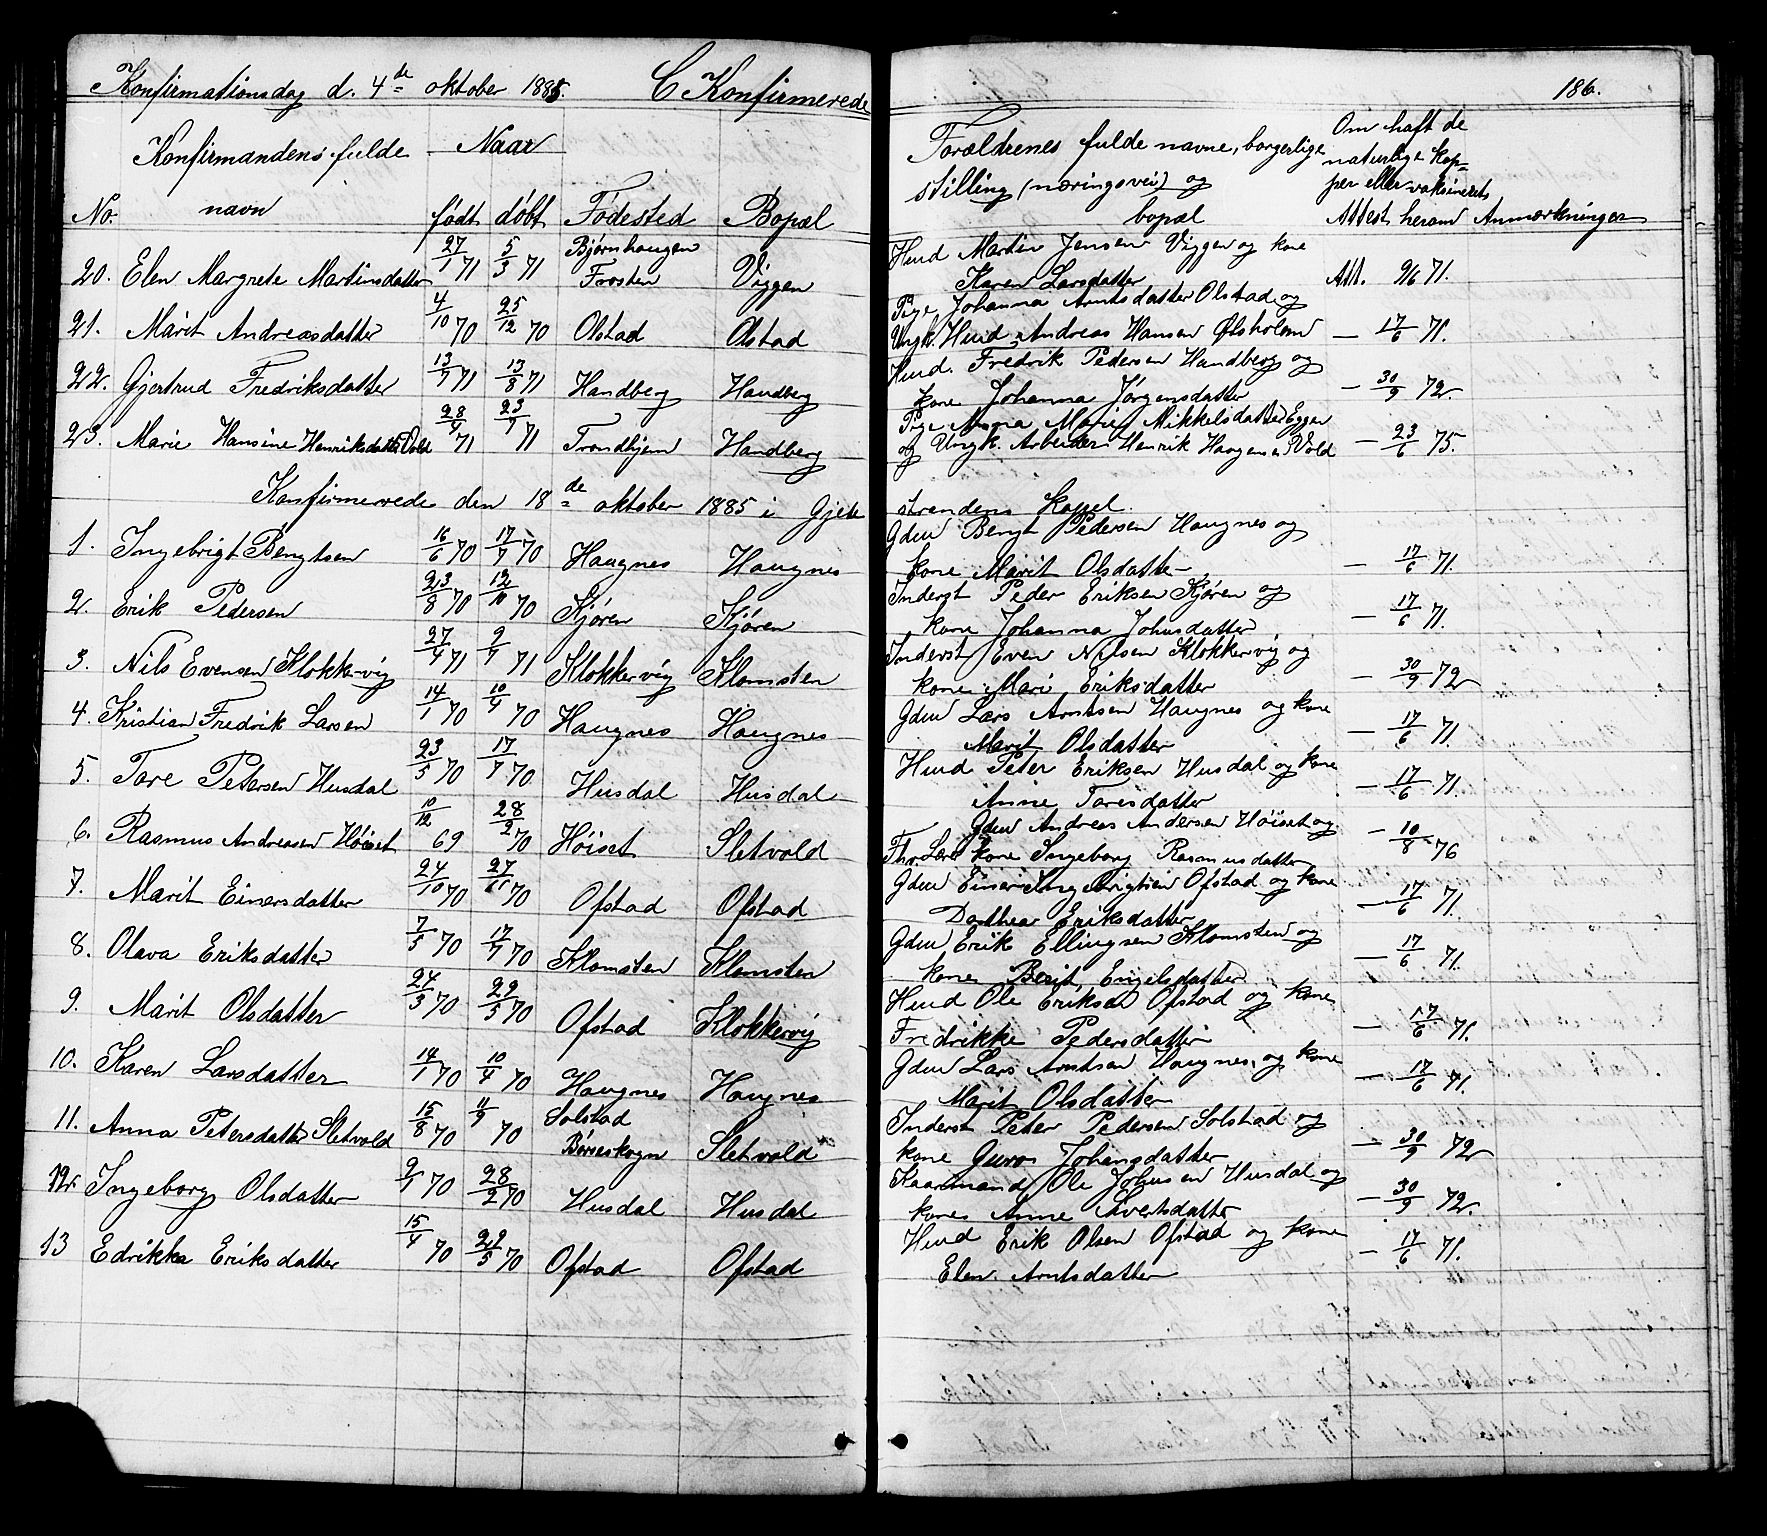 Konfirmationsdag d. 4de oktober 1885. C Konfirmerede
186.
Konfirmandens fulde navn
Naar
Forældrenes fulde navne, borgerlige
stilling (næringsvei) og
bopæl
Om haft de
naturlige kop-
per eller vaksineret
No. født døbt Fødested Bopæl Attest herom Anmærkninger
20. Elen Margrete Martinsdatter 27/1 71 5/3 71 Bjørnhaugen Frosten Viggen Huusd Martin Jensen Viggen og kone
Karen Larsdatter Att. 9/6 71.
21. Marit Andreasdatter 4/10 70 25/12 70 Olstad Olstad Pige Johanna Arntsdatter Olstad og
Ungk. Husd Andreas Hansen Øtsholam — 17/6 71.
22. Gjertrud Fredriksdatter 13/7 71 13/8 71 Handberg Handberg Husd. Fredrik Pedersen Handberg og
kone Johanna Jørgensdatter — 30/9 72
23. Marie Hansine Henriksdatter Vold 28/4 71 23/7 71 Trondhjem Handberg Pige Anna Marie Mikkelsdatter Eggen
og Ungk. Arbeider Henrik Haagensen Vold — 23/6 75.
Konfirmerede den 18de oktober 1885 i Gjete strandens Kapel.
1. Ingebrigt Bengtsen 16/6 70 17/7 70 Haugnes Haugnes Gdm Bengt Pedersen Haugnes og
kone Marit Olsdatter — 17/6 71.
2. Erik Pedersen 23/8 70 12/10 70 Kjøren Kjøren Inderst Peder Eriksen Kjøren og
kone Johanna Johnsdatter — 17/6 71.
3. Nils Evensen Klokkervig 27/4 71 9/7 71 Klokkervig Klomsten Inderst Even Nilsen Klokkervig og
kone Mari Eriksdatter — 30/9 72
4. Kristian Fredrik Larsen 14/1 70 10/4 70 Haugnes Haugnes Gdm Lars Arntsen Haugnes og kone
Marit Olsdatter — 17/6 71.
5. Tore Petersen Husdal 23/5 70 17/7 70 Husdal Husdal Husd Peter Eriksen Husdal og kone
Anne Toresdatter — 17/6 71
6. Rasmus Andreasen Høiset 10/12 69 28/2 70 Høiset Sletvold Gdm Andreas Andersen Høiset og
kone Ingeborg Rasmusdatter — 10/8 76
7. Marit Einersdatter 24/10 70 27/11 70 Ofstad Ofstad Gdm Einer Ingebrigtsen Ofstad og kone
Dorthea Eriksdatter — 17/6 71.
8. Olava Eriksdatter 7/5 70 17/7 70 Klomsten Klomsten Gdm Erik Ellingsen Klomsten og
kone Berit Engelsdatter — 17/6 71.
9. Marit Olsdatter 24/3 70 22/5 70 Ofstad Klokkervig Husd Ole Eriksen Ofstad og kone
Fredrikke Pedersdatter — 17/6 71.
10. Karen Larsdatter 14/1 70 10/4 70 Haugnes Haugnes Gdm Lars Arntsen Haugnes og kone
Marit Olsdatter — 17/6 71.
11. Anna Petersdatter Sletvold 15/8 70 11/9 70 Solstad Børseskogn Sletvold Inderst Peter Pedersen Solstad og
kone Guro Johansdatter — 30/9 72
12. Ingeborg Olsdatter 9/1 70 28/2 70 Husdal Husdal Kaarmand Ole Johnsen Husdal og
kone Anne Sivertsdatter — 30/9 72.
13 Edrikka Eriksdatter 15/4 70 22/5 70 Ofstad Ofstad Husd Erik Olsen Ofstad og kone
Elen Arntsdatter — 17/6 71.